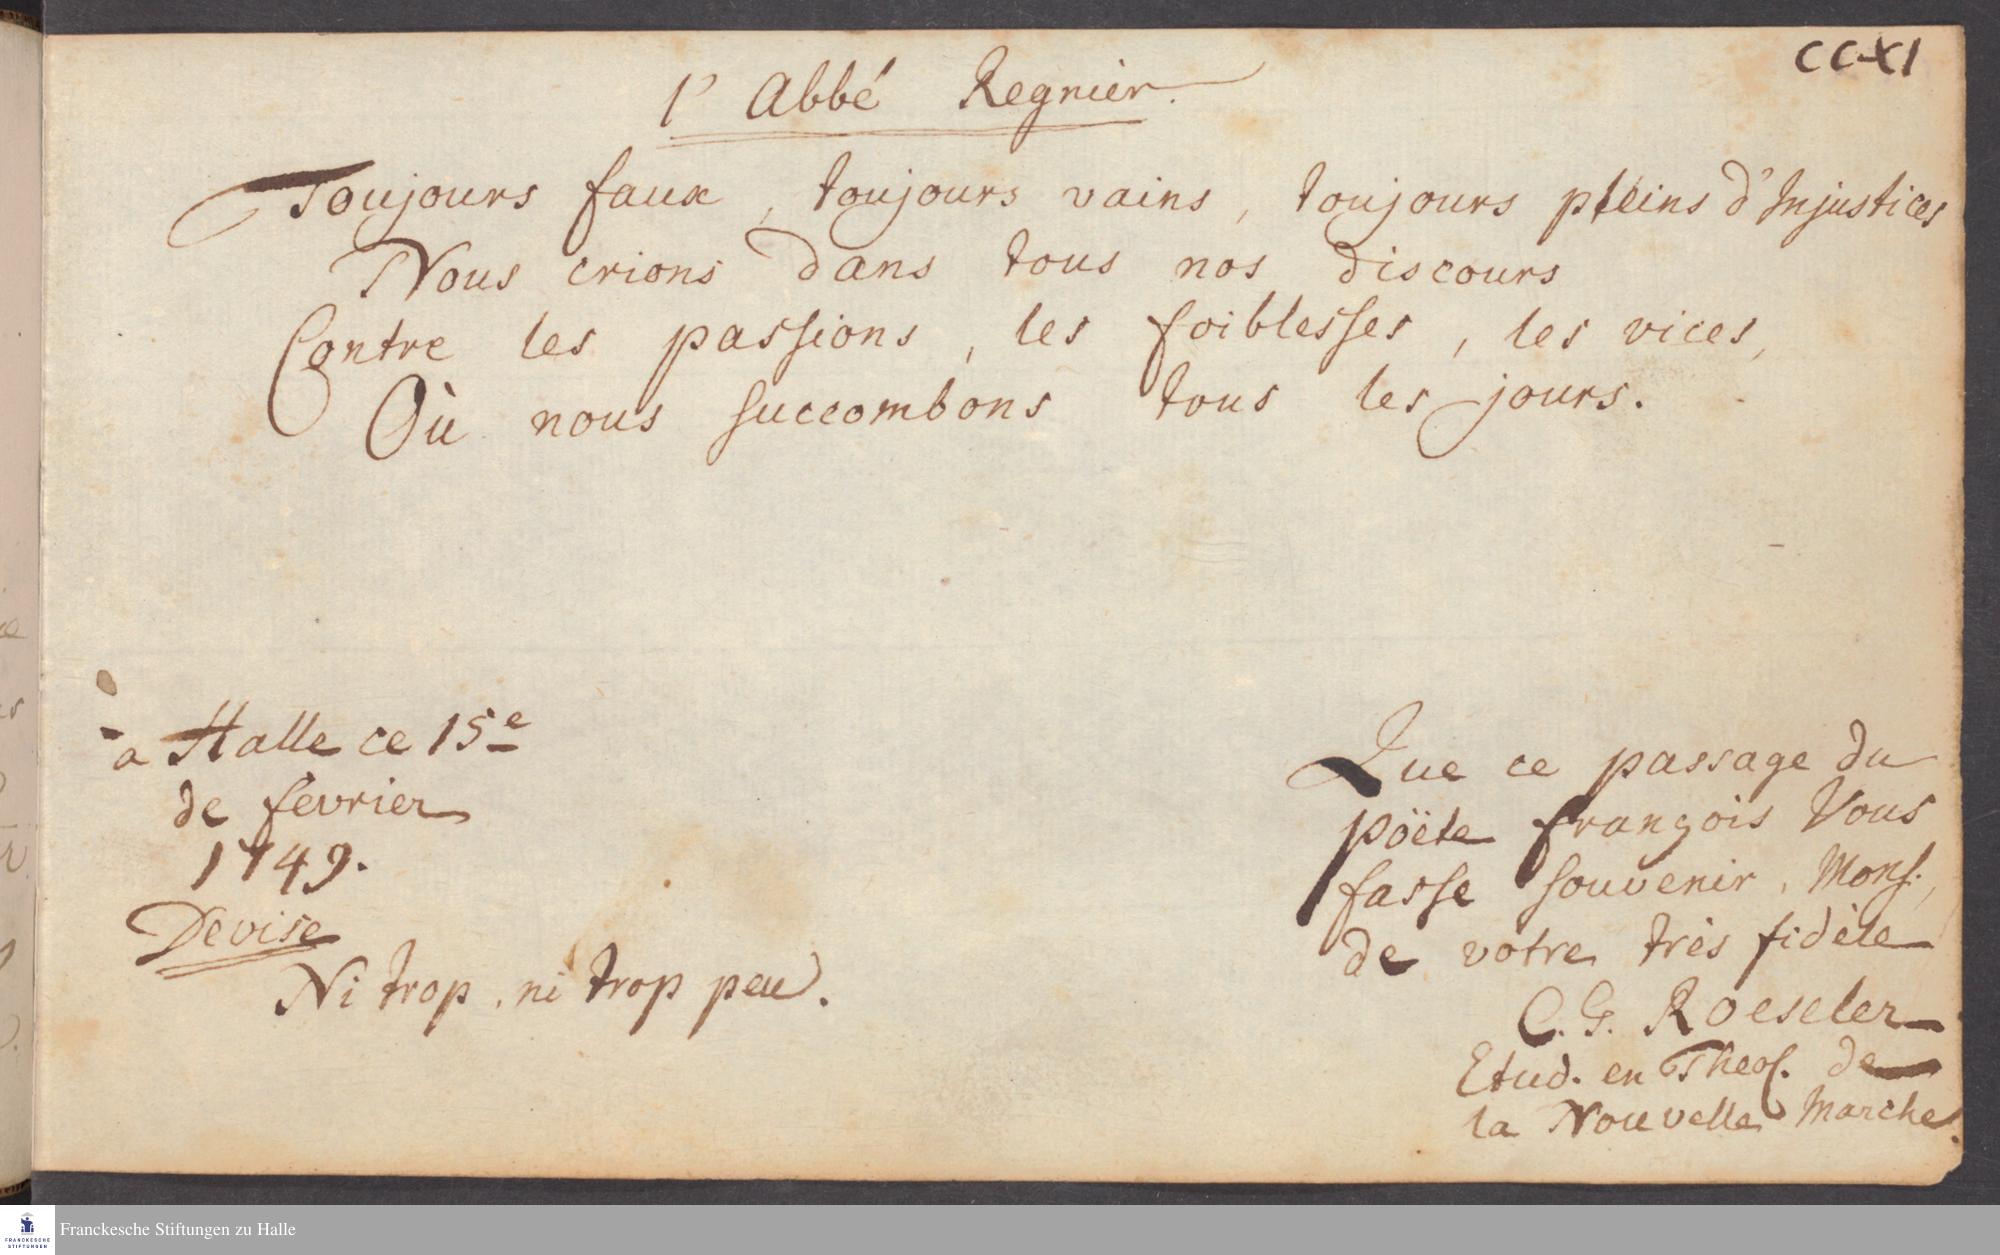 CCXI
l' Abbé Regnier.
Toujours faux, toujours vains, toujours pleins d'Injustices
Nous crions dans tous nos discours
Contre les passions, les foiblesses, les vices,
Où nous succombons tous les jours.
a Halle ce 15e
de fevrier
1749.
Devise
Ni trop, ni trop peu.
Que ce passage du
pöete françois Vous
fasse souvenir, Mons.,
de votre très fidèle
C. G. Roeseler
Etud. en Theol. de
la Nouvelle Marche.
FRANCKESCHE
STIFTUNGEN
Franckesche Stiftungen zu Halle